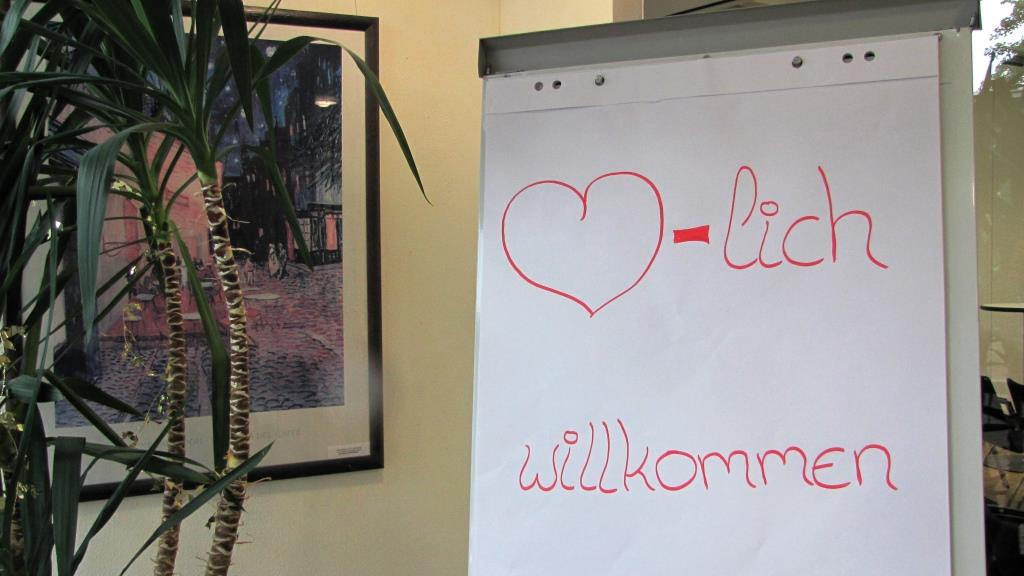 ❤-lich
willkommen